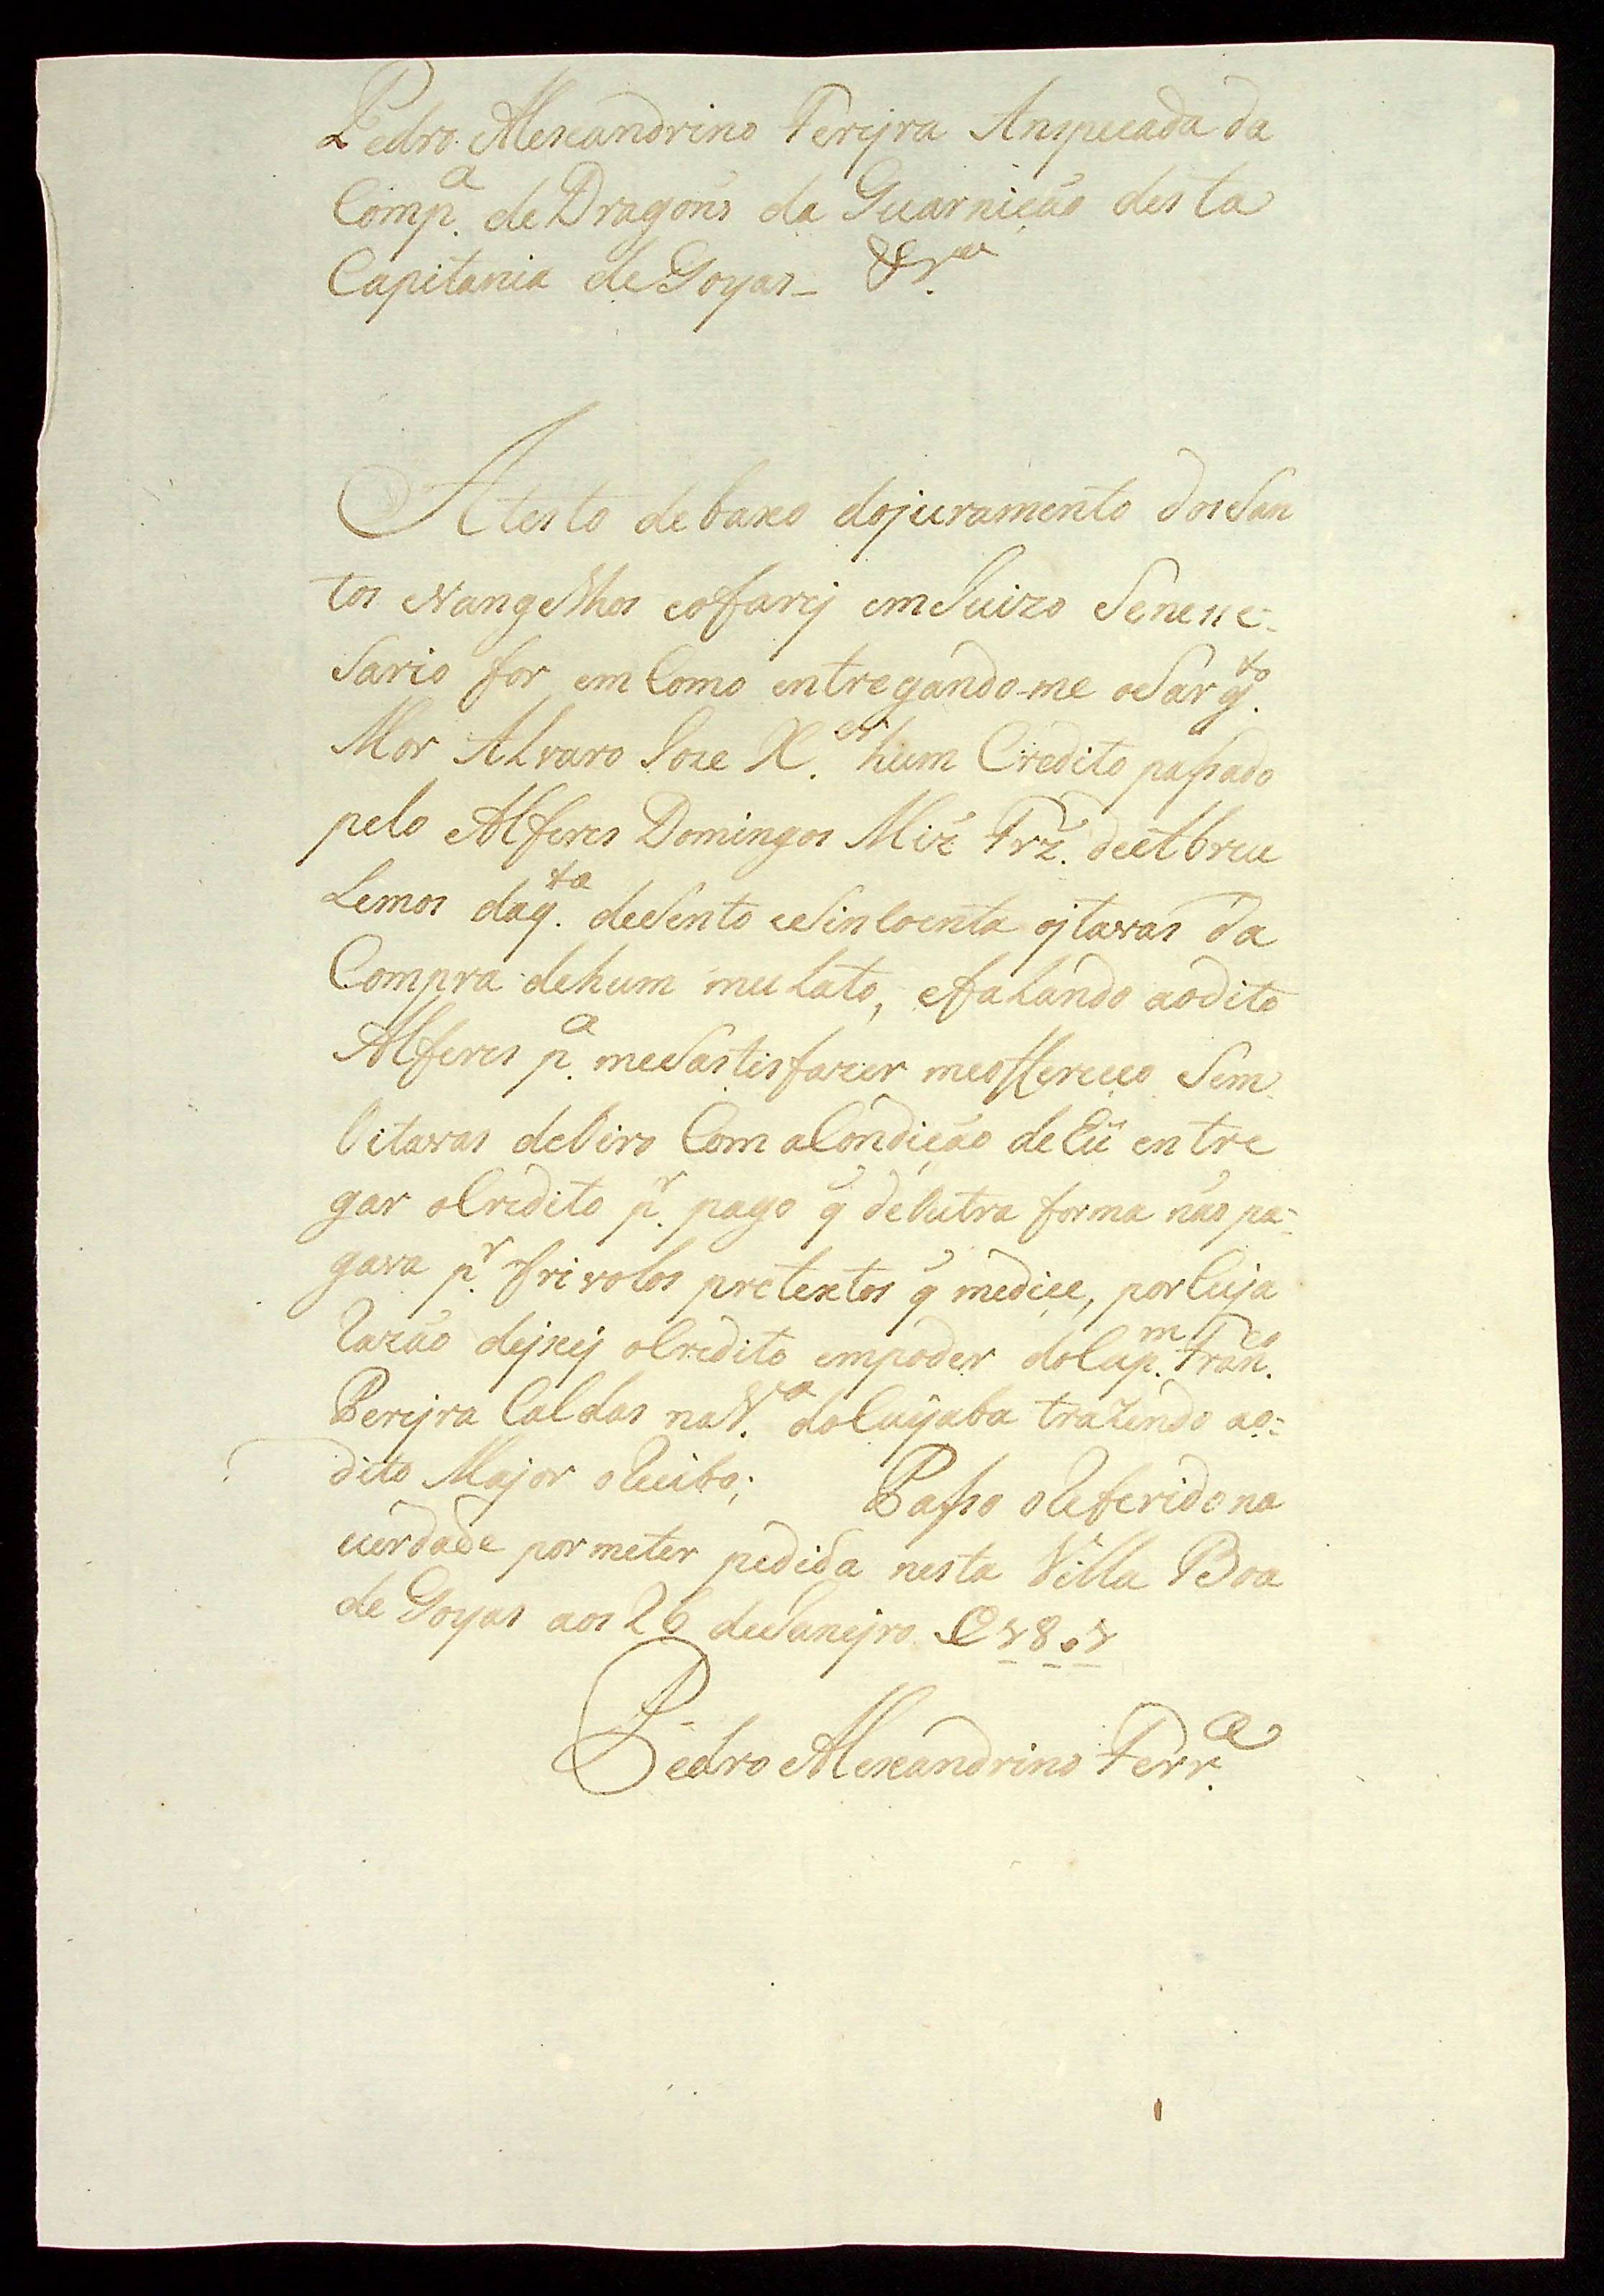 Pedro Alexandrino Ferejra Anspecada da
Comp.ª de Dragoñs da Guarnicaõ desta
Capitania de Goyas_ &r.ª
Atesto debaxo dojuramento dosSan
tos evangelhos eofarej emJuizo Senese-
sario for emComo entregando-me oSarg.to
Mor Alvaro Joze X.er hum Credito passado
pelo Alferes Domingos Miz̃ Frz̃. deAbreu
Lemos daq.ta deSento eSincoenta ojtavas da
Compra dehum mulato, efalando aodito
Alferes p.ª meSastisfazer meoffereceo Sem
Oitavas deOiro Com aCondicaõ deEu entre
gar oCredito p.r pago q̃ deOutra forma naõ pa-
gava p.r frivolos pretextos q̃ medice, porCuja
Razaõ dejxej oCredito empoder doCap.m Fran.co
Perejra Caldas naV.ª doCuyaba trazendo ao-
dito Major oRecibo; Passo oReferido na
verdade por meter pedida nesta Villa Boa
de Goyas aos 26 deJanejro de 1801
Pedro Alexandrino Ferr.ª